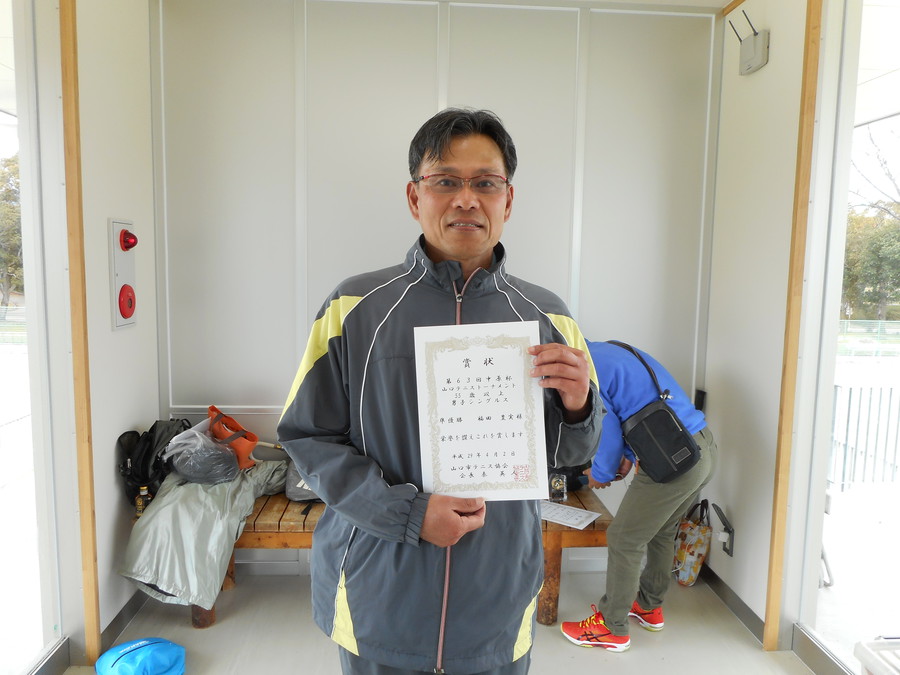 賞状
第63回中原杯
山口テニストーナメント
55歳以上
男子シングルス
準優勝 福田 豊実様
栄誉を讃えこれを賞します
平成29年4月2日
山口市テニス協会
会長